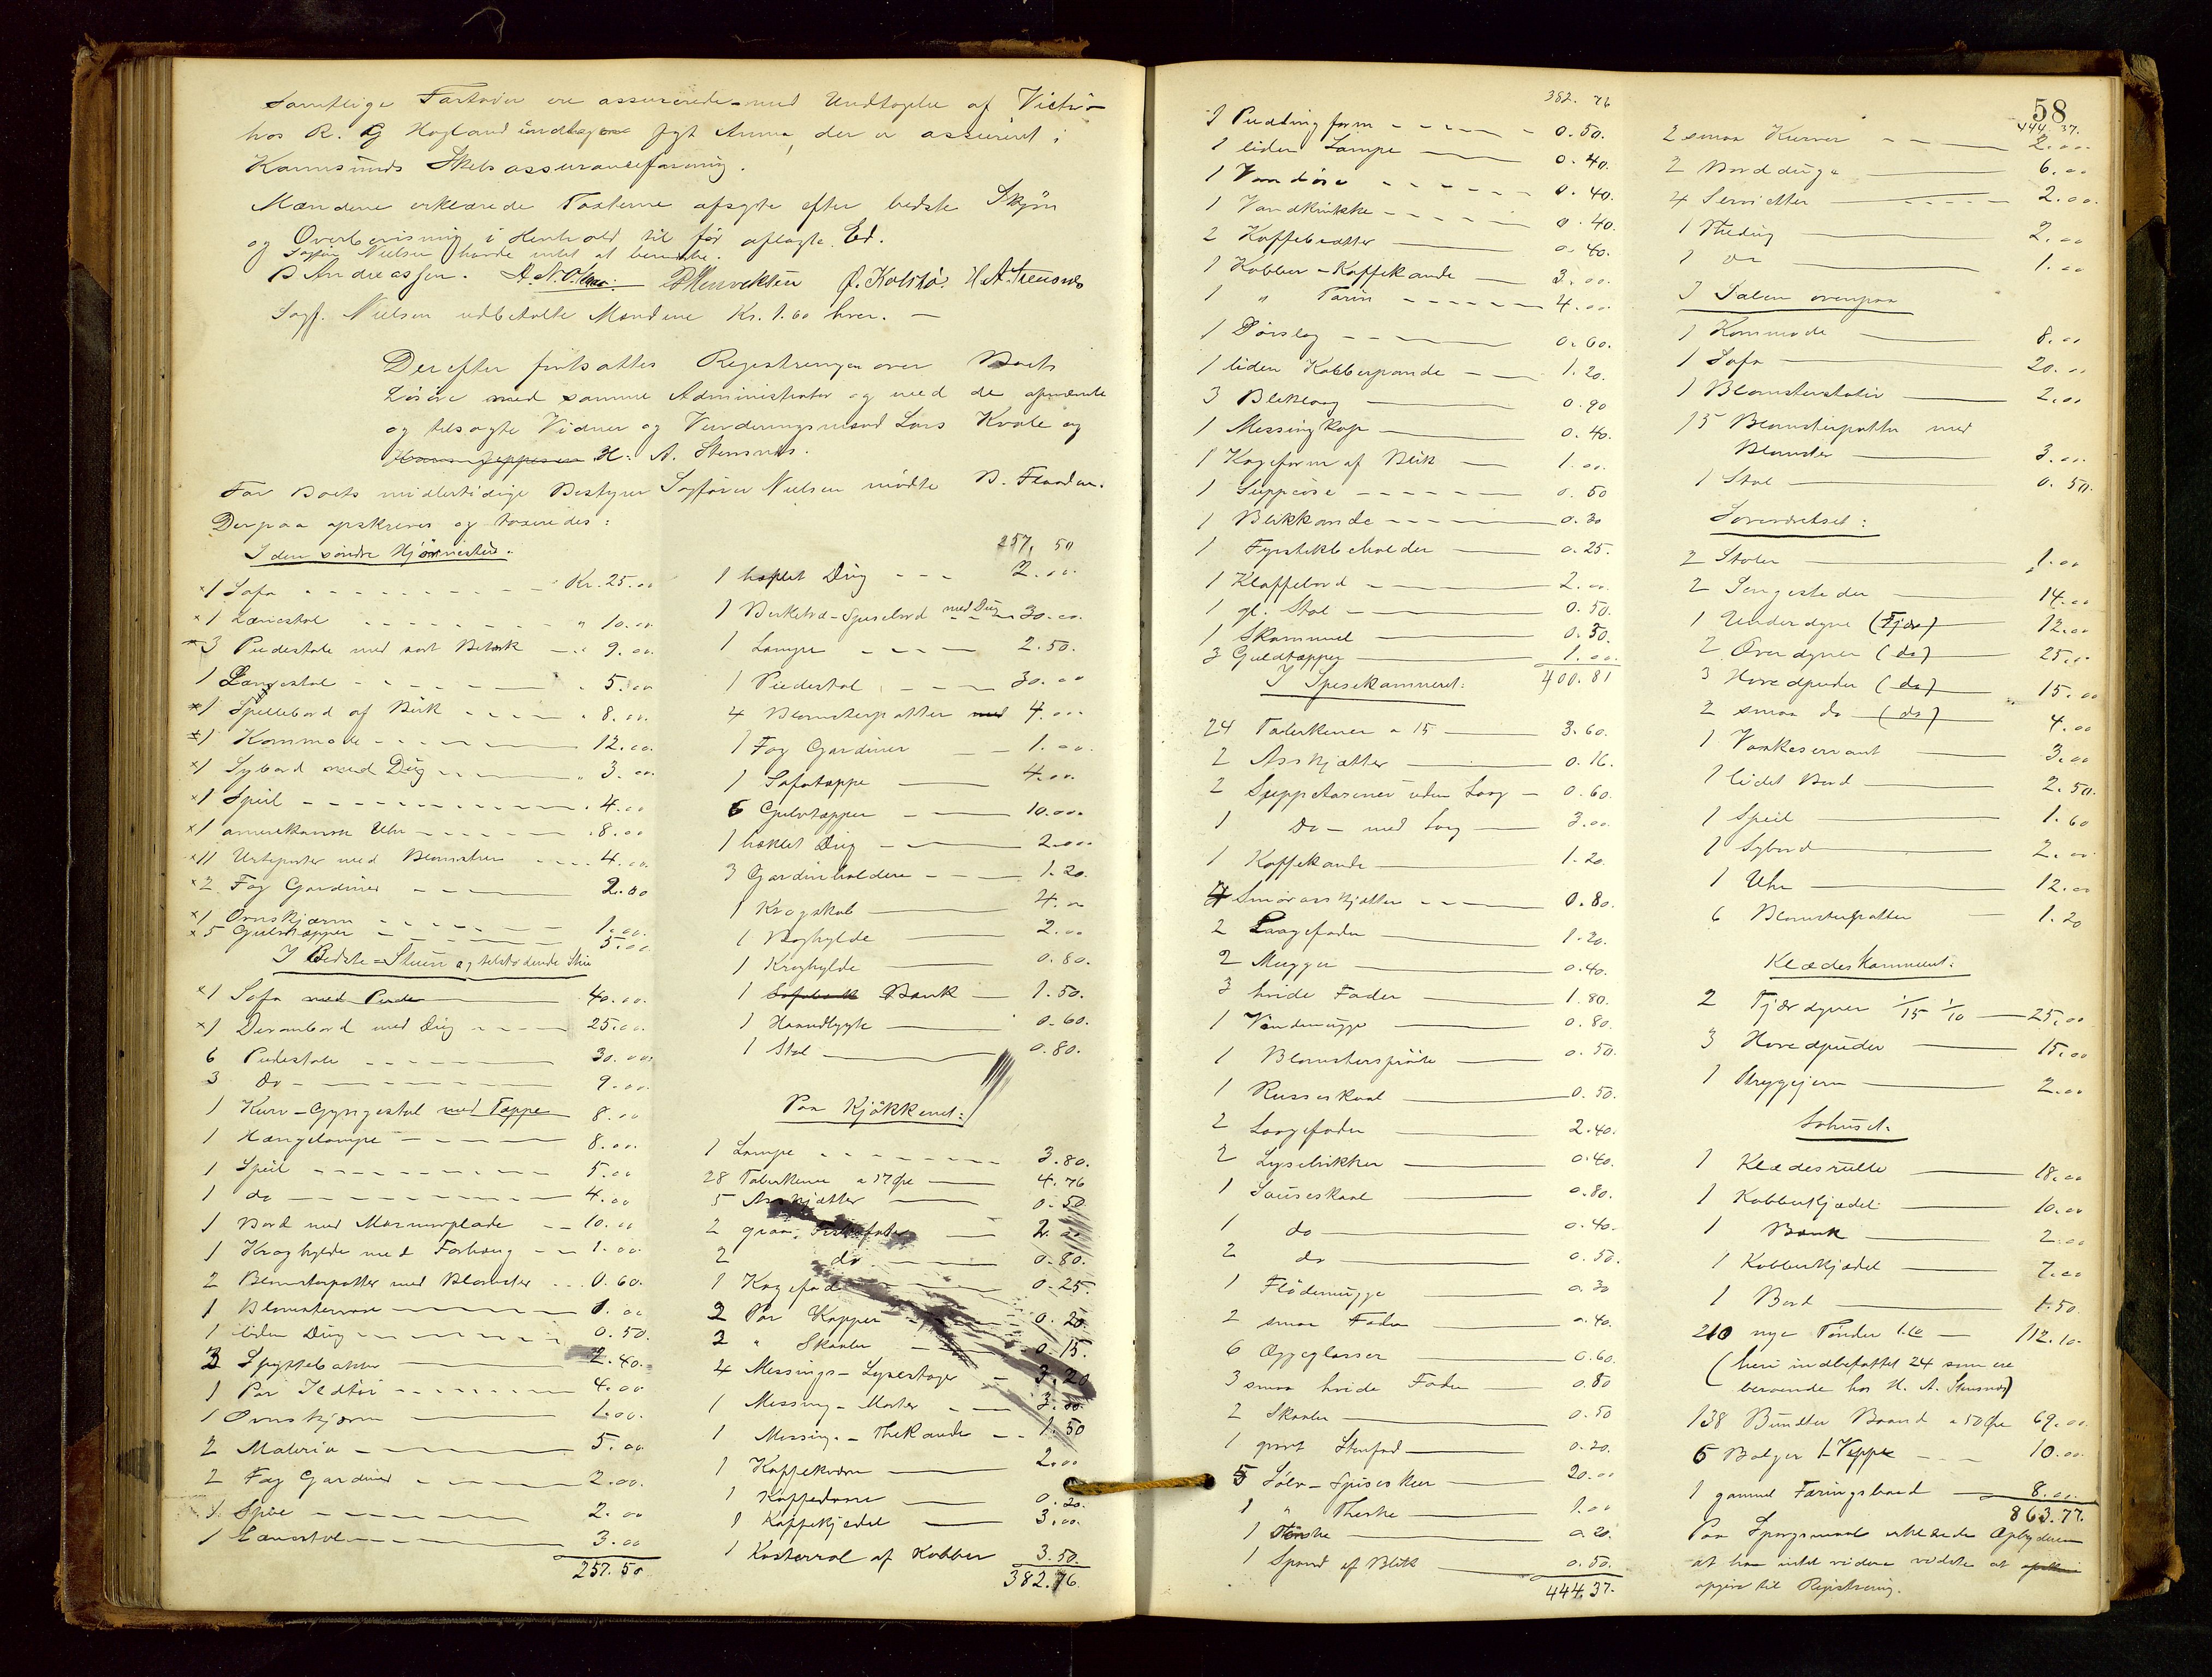 Samtlige Fartøier ere assurerede med Undtagelse af Victri-
hos R. G Hagland undtagen Jgt Anna, der er assureret i
Karmsunds Skibsassuranceforening.
Mændene erklærede Taxterne afsagte efter bedste Skjøn
og Overbevisning i Henhold til før aflagte Ed.
Sagfør Nielsen havde intet at bemærke.
B Andreassen. A. N. Olsen. P Henricksen Ø. Kolstø. H. A. Stensnes
Sagf. Nielsen udbetalte Mændene Kr. 1.60 hver. —
Derefter fortsattes Registreringen over Boets
Løsøre med samme Administrator og med de opnævnte
og tilsagte Vidner og Vurderingsmænd Lars Kvale og
H. A. Stensnes.
For Boets midlertidige Bestyrer Sagfører Nielsen mødte B. Flaaden.
Derpaa opskreves og taxeredes:
I den søndre Hjørnestue.
×1 Sofa Kr. 25.00
×1 Lænestol " 10.00
×3 Pindestole med sort Betræk " 9.00
1 Længestol " 5.00
×1 Spillebord af Birk " 8.00
×1 Kommode 12.00
×1 Sybord med Dug " 3.00
×1 Speil 4.00
×1 amerikansk Uhr 8.00
×11 Urtepotter med Blomster 4.00
×2 Fag Gardiner 2.00
×1 Ovnskjærm 1.00
×5 Gulvtæpper 5.00
I Bedste-Stuen og tilstødende Stue
×1 Sofa med Pude 40.00
×1 Divanbord med Dug 25.00
6 Pindestole 30.00
3 do 9.00
1 Kurv-Gyngestol med Tæppe 8.00
1 Hængelampe 8.00
1 Speil 5.00
1 do 4.00
1 Bord med Marmorplade 10.00
1 Kroghylde med Forhæng 1.00
2 Blomsterpotter med Blomster 0.60
1 Blomstervase 1.00
1 liden Dug 0.50
3 Spyttebakker 2.40
1 Par Ildtøi 4.00
1 Ovnskjærm 1.00
2 Malerier 5.00
2 Fag Gardiner 2.00
1 Speil 2.00
1 Lænestol 3.00
257.50
257.50
1 hæklet Dug 2.00
1 Birketræ-Spisebord med Dug 30.00
1 Lampe 2.50
1 Piedestal 30.00
4 Blomsterpotter 4.00
1 Fag Gardiner 1.00
1 Sofatæppe 4.00
6 Gulvtæpper 10.00
1 hæklet Dug 2.00
3 Gardinholdere 1.20
1 Krogskab 4.00
1 Boghylde 2.00
1 Kroghylde 0.80
1 Bænk 1.50
1 Haandlygte 0.60
1 Stol 0.80
Paa Kjøkkenet:
1 Lampe 3.80
28 Talerkener a 17 Øre 4.76
5 Asskjætter 0.50
2 graa Fiskefade 2.00
2 do 0.80
1 Kagefad 0.25
2 Par Kopper 0.20
2 " Skaaler 0.15
4 Messings-Lysestager 3.20
1 Messing-Morter 3.00
1 Messing-Thekande 1.50
1 Kaffekværn 2.00
1 Kaffedaase 0.20
1 Kaffekjedel 3.00
1 Kasterral af Kobber 3.50
382.76
382.76
1 Puddingform 0.50
1 liden Lampe 0.40
1 Vandøse 0.40
1 Vandkrukke 0.40
2 Kaffebrætter 0.40
1 Kobber-Kaffekande 3.00
1 " Tarin 4.00
1 Dørslag 0.60
1 liden Kobberpande 1.20
3 Bliklaag 0.90
1 Messingkop 0.40
1 Kageform af Blik 1.00
1 Suppeøse 0.50
1 Blikkande 0.30
1 Fyrstikbeholder 0.25
1 Klappebord 2.00
1 gl. Stol 0.50
1 Skammel 0.50
3 Gulvtæpper 1.00
I Spisekammeret: 400.81
24 Talerkener a 15 3.60
2 Asskjætter 0.16
2 Suppetariner uden Laag 0.60
1 Do — med Laag 3.00
1 Kaffekande 1.20
4 Smørasskjætter 0.80
2 Laagefade 1.20
2 Mugger 0.40
3 hvide Fade 1.80
1 Vandmugge 0.80
1 Blomstersprøite 0.50
1 Russeskaal 0.50
2 Laagefade 2.40
2 Lysebrikker 0.40
1 Sauseskaal 0.80
1 do 0.40
2 do 0.50
1 Flødemugge 0.30
2 smaa Fade 0.40
6 Æggeglasser 0.60
3 smaa hvide Fade 0.80
2 Skaaler 0.50
1 graat Stenfad 0.20
5 Sølv-Spiseskeer 20.00
1 " Theske 1.00
1 Theske 0.20
1 Spand af Blik 0.50
444.37
58
444.37.
2 smaa Kurver 2.00
2 Bordduge 6.00
4 Servietter 2.00
1 2.00
1 do 1.00
I Salen ovenpaa
1 Kommode 8.00
1 Sofa 20.00
1 Blomsterstativ 2.00
15 Blomsterpotter med
Blomster 3.00
1 Stol 0.50
Soverelset:
2 Stoler 1.00
2 Sengesteder 14.00
1 Underdyne (Fjær) 12.00
2 Overdyner (do) 25.00
3 Hovedpuder (do) 15.00
2 smaa do (do) 4.00
1 Vaskeservant 3.00
1 lidet Bord 2.50
1 Speil 1.60
1 Sybord 2.00
1 Uhr 12.00
6 Blomsterpotter 1.20
Klædeskammeret:
2 Fjærdyner 1/15 1/10 25.00
3 Hovedpuder 15.00
1 Strygejern 2.00
Søhuset:
1 Klædesrulle 18.00
1 Kobberkjædel 10.00
1 Bænk 2.00
1 Kobberkjædel 7.00
1 Bord 1.50
210 nye Tønder 112.10
(heri indbefattet 24 som ere
beroende hos H. A. Stensnes)
138 Bundter Baand a 50 Øre 69.00
5 Balger 10.00
1 gammel Færingsbaad 8.00
863.77.
Paa Spørgsmaal erklærede Opbyderen
at han intet videre vidste at
opgive til Registrering.